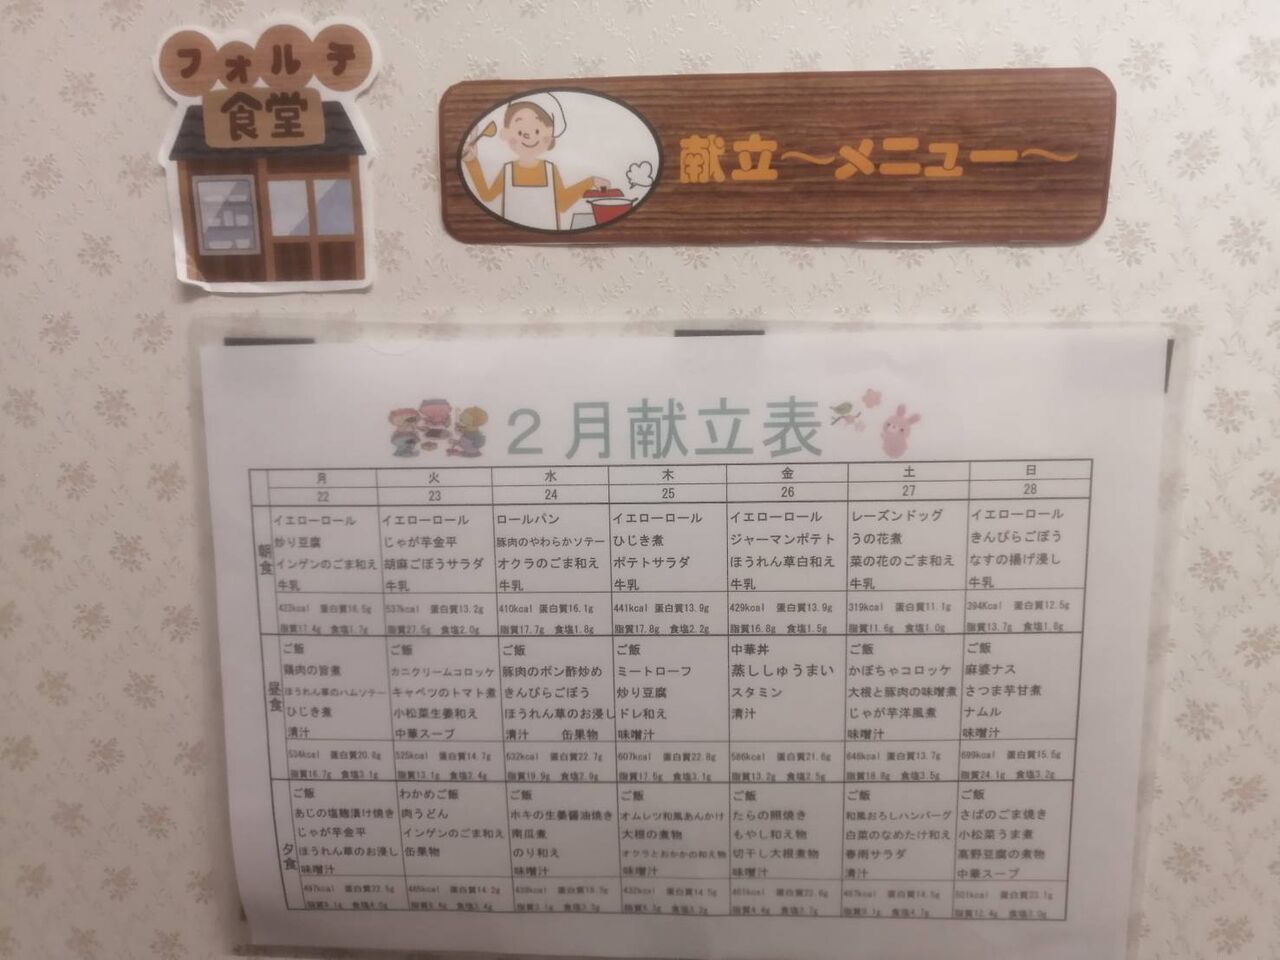 フォルテ
食堂
献立～メニュー～
２月献立表
月 火 水 木 金 土 日
22 23 24 25 26 27 28
朝食
イエローロール イエローロール ロールパン イエローロール イエローロール レーズンドッグ イエローロール
炒り豆腐 じゃが芋金平 豚肉のやわらかソテー ひじき煮 ジャーマンポテト うの花煮 きんぴらごぼう
インゲンのごま和え 胡麻ごぼうサラダ オクラのごま和え ポテトサラダ ほうれん草白和え 菜の花のごま和え なすの揚げ浸し
牛乳 牛乳 牛乳 牛乳 牛乳 牛乳 牛乳
433kcal 蛋白質16.5g 537kcal 蛋白質13.2g 410kcal 蛋白質16.1g 441kcal 蛋白質13.9g 429kcal 蛋白質13.9g 319kcal 蛋白質11.1g 394Kcal 蛋白質12.5g
脂質17.4g 食塩1.7g 脂質27.5g 食塩2.0g 脂質17.7g 食塩1.8g 脂質17.8g 食塩2.2g 脂質16.8g 食塩1.5g 脂質11.6g 食塩1.0g 脂質13.7g 食塩1.8g
昼食
ご飯 ご飯 ご飯 ご飯 中華丼 ご飯 ご飯
鶏肉の旨煮 カニクリームコロッケ 豚肉のポン酢炒め ミートローフ 蒸ししゅうまい かぼちゃコロッケ 麻婆ナス
ほうれん草のハムソテー キャベツのトマト煮 きんぴらごぼう 炒り豆腐 スタミン 大根と豚肉の味噌煮 さつま芋甘煮
ひじき煮 小松菜生姜和え ほうれん草のお浸し ドレ和え 清汁 じゃが芋洋風煮 ナムル
清汁 中華スープ 清汁 缶果物 味噌汁 味噌汁 味噌汁
534kcal 蛋白質20.8g 525kcal 蛋白質14.7g 632kcal 蛋白質22.7g 607kcal 蛋白質22.8g 586kcal 蛋白質21.6g 646kcal 蛋白質13.7g 699kcal 蛋白質15.5g
脂質16.7g 食塩3.1g 脂質13.1g 食塩2.4g 脂質19.9g 食塩2.9g 脂質17.5g 食塩3.1g 脂質13.2g 食塩2.5g 脂質18.8g 食塩3.5g 脂質24.1g 食塩3.2g
夕食
ご飯 わかめご飯 ご飯 ご飯 ご飯 ご飯 ご飯
あじの塩麹漬け焼き 肉うどん ホキの生姜醤油焼き オムレツ和風あんかけ たらの照焼き 和風おろしハンバーグ さばのごま焼き
じゃが芋金平 インゲンのごま和え 南瓜煮 大根の煮物 もやし和え物 白菜のなめたけ和え 小松菜うま煮
ほうれん草のお浸し 缶果物 のり和え オクラとおかかの和え物 切干し大根煮物 春雨サラダ 高野豆腐の煮物
味噌汁 味噌汁 味噌汁 味噌汁 清汁 中華スープ
497kcal 蛋白質22.5g 485kcal 蛋白質14.2g 蛋白質 432kcal 蛋白質14.5g 蛋白質22.6g 蛋白質14.5g 501kcal 蛋白質
脂質 食塩4.0g 脂質 食塩 脂質 食塩 脂質 食塩 脂質 食塩 脂質 食塩 脂質12.4g 食塩